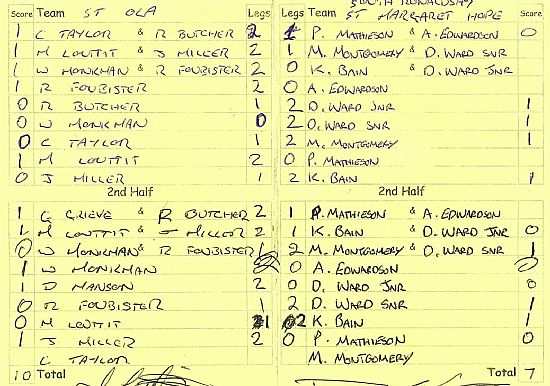 Score Team ST OLA Legs Legs Team SOUTH RONALDSAY ST MARGARET HOPE Score
1 C TAYLOR & R BUTCHER 2 1 P. MATHIESON & A. EDWARDSON 0
1 M LOUTTIT & J MILLER 2 1 M. MONTGOMERY & D. WARD SNR
1 W MONKMAN & R FOUBISTER 2 0 K. BAIN & D. WARD JNR
1 R FOUBISTER 2 0 A. EDWARDSON
0 R BUTCHER 1 2 D. WARD JNR 1
0 W MONKMAN 0 2 D. WARD SNR 1
0 C TAYLOR 1 2 M. MONTGOMERY 1
1 M LOUTTIT 2 0 P. MATHIESON
0 J MILLER 1 2 K. BAIN 1
2nd Half 2nd Half
1 G GRIEVE & R BUTCHER 2 1 P. MATHIESON & A. EDWARDSON
1 M LOUTTIT & J MILLER 2 1 K. BAIN & D. WARD JNR 0
0 W MONKMAN & R FOUBISTER 1 2 M. MONTGOMERY & D. WARD SNR 1
1 W MONKMAN 2 0 A. EDWARDSON 0
1 D MANSON 2 0 D. WARD JNR 0
0 R FOUBISTER 1 2 D. WARD SNR 1
0 M LOUTTIT 1 2 K. BAIN 1
1 J MILLER 2 0 P. MATHIESON 0
C TAYLOR M. MONTGOMERY
10 Total Total 7